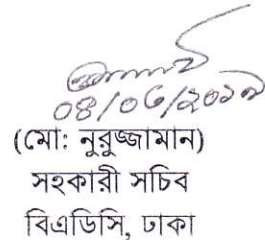 ০৪/০৬/২০১৯
(মো: নুরুজ্জামান)
সহকারী সচিব
বিএডিসি, ঢাকা